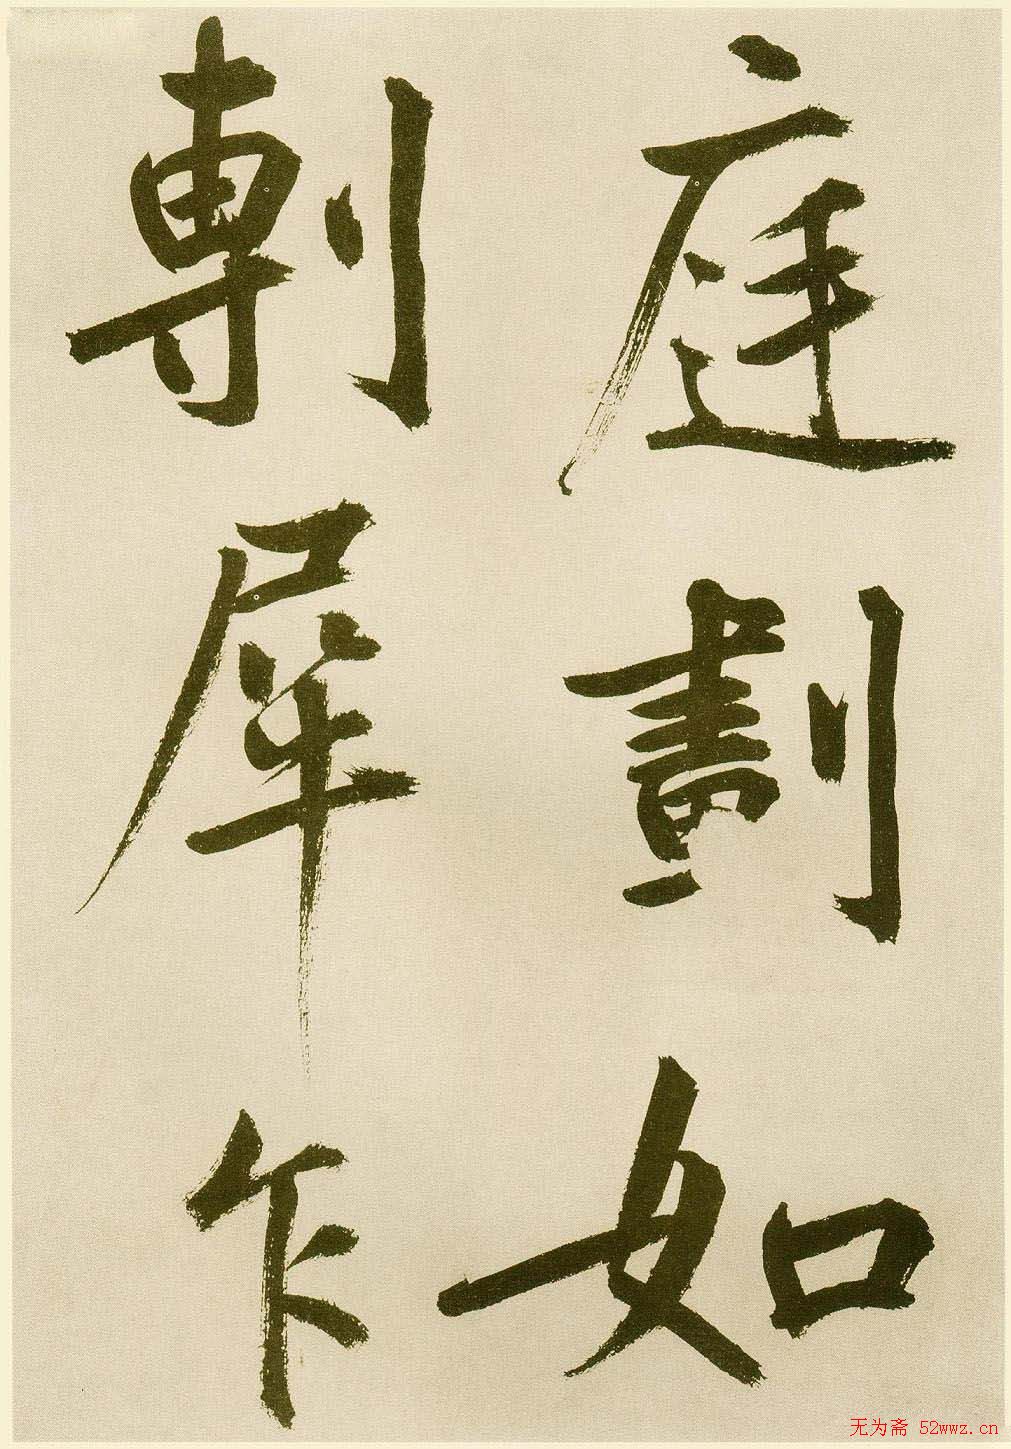 庭劃如
剸犀乍
无为斋 52wwz.cn